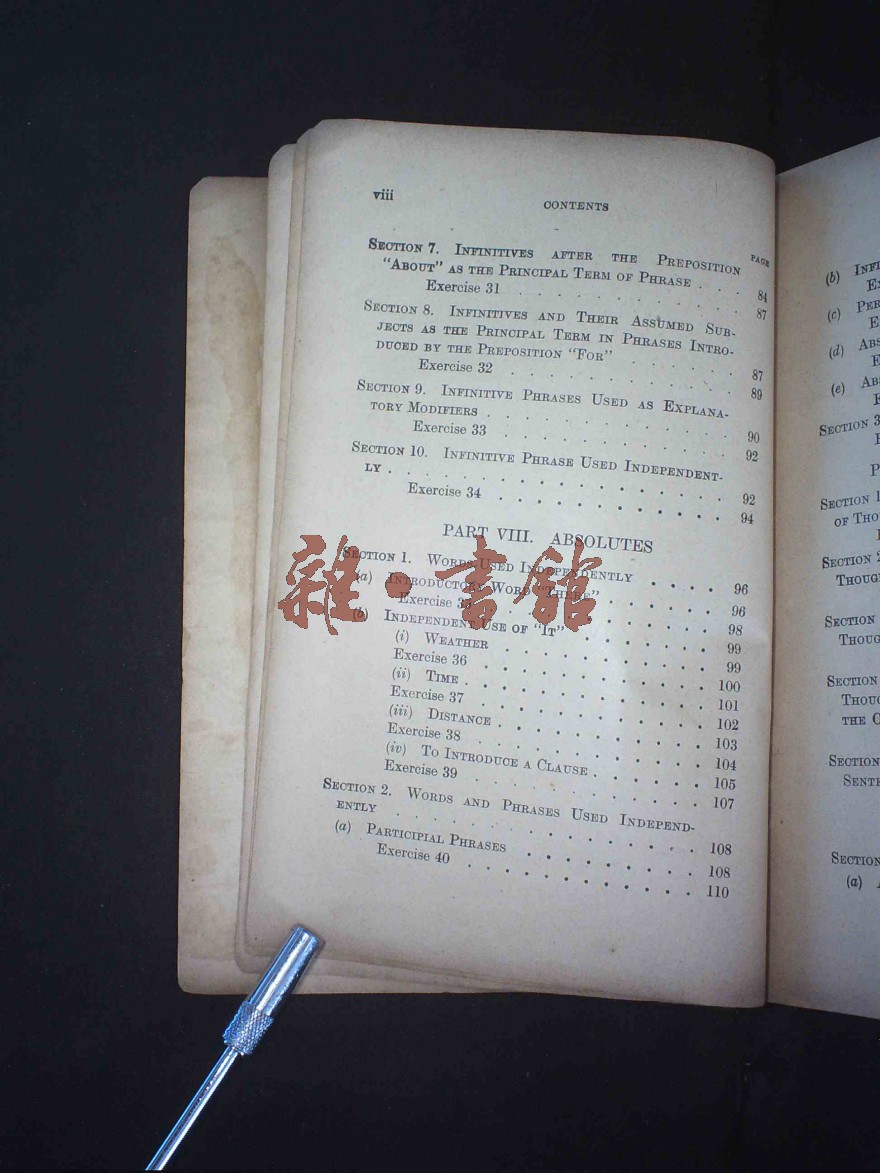 viii
CONTENTS
PAGE
SECTION 7. INFINITIVES AFTER THE PREPOSITION
"ABOUT" AS THE PRINCIPAL TERM OF PHRASE . . . 84
Exercise 31 . . . . . . . . . . 87
SECTION 8. INFINITIVES AND THEIR ASSUMED SUB-
JECTS AS THE PRINCIPAL TERM IN PHRASES INTRO-
DUCED BY THE PREPOSITION "FOR" . . . . . . 87
Exercise 32 . . . . . . . . . . 89
SECTION 9. INFINITIVE PHRASES USED AS EXPLANA-
TORY MODIFIERS . . . . . . . . . . . 90
Exercise 33 . . . . . . . . . . 92
SECTION 10. INFINITIVE PHRASE USED INDEPENDENT-
LY . . . . . . . . . . . . . . 92
Exercise 34 . . . . . . . . . . 94
PART VIII. ABSOLUTES
SECTION 1. WORDS USED INDEPENDENTLY . . . . 96
(a) INTRODUCTORY WORD "THERE" . . . . . . 96
Exercise 35 . . . . . . . . . . 98
(b) INDEPENDENT USE OF "IT" . . . . . . . 99
(i) WEATHER . . . . . . . . . . 99
Exercise 36 . . . . . . . . . . 100
(ii) TIME . . . . . . . . . . . 101
Exercise 37 . . . . . . . . . . 102
(iii) DISTANCE . . . . . . . . . . 103
Exercise 38 . . . . . . . . . . 104
(iv) TO INTRODUCE A CLAUSE . . . . . . 105
Exercise 39 . . . . . . . . . . 107
SECTION 2. WORDS AND PHRASES USED INDEPEND-
ENTLY . . . . . . . . . . . . . 108
(a) PARTICIPIAL PHRASES . . . . . . . . 108
Exercise 40 . . . . . . . . . . 110
雜·書館
(b)
(c)
(d)
(e)
SECTION 3
SECTION 1
OF THO
SECTION 2
THOUG
SECTION
THOUG
SECTION
THOUG
THE C
SECTION
SENTE
SECTION
(a)